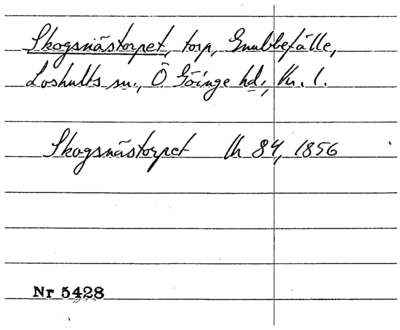 Skogsnästorpet, torp, Gnubbefälle,
Loshults sn., Ö Göinge hd., Kr. l.
Skogsnästorpet Kh 84, 1856
Nr 5428